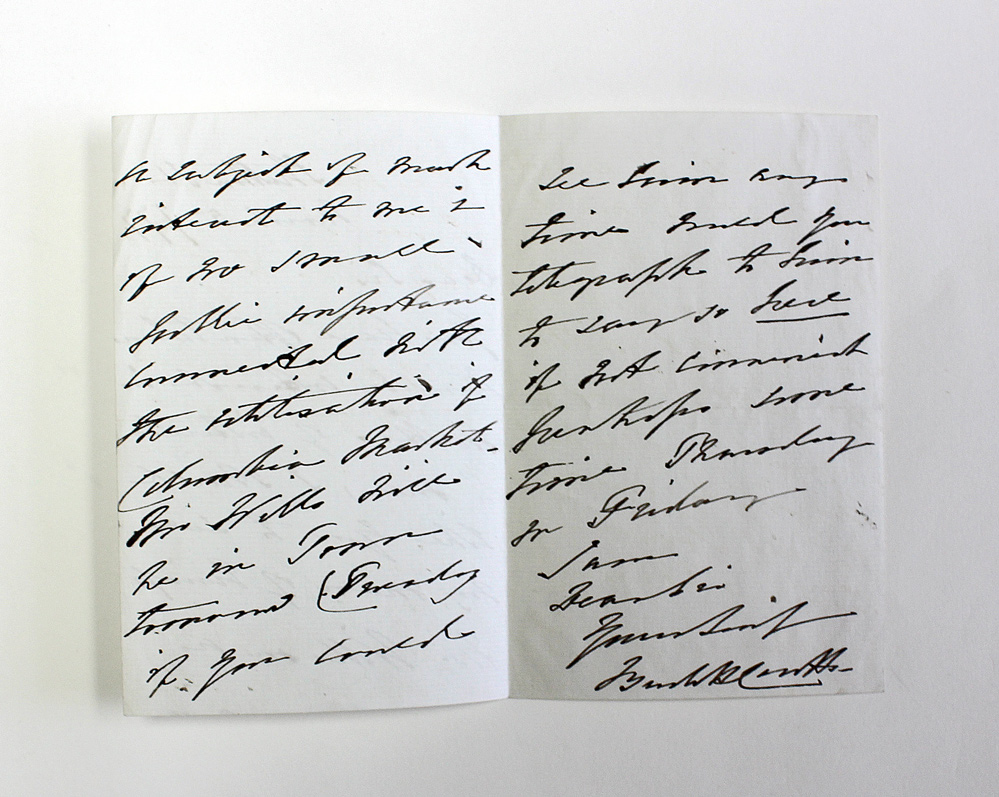 a subject of much
interest to me &
of no small
Public importance
connected with
the utilisation of
Columbia Market-
Mr Wills will
be in Town
tomorrow (Tuesday
if you could
see him any
time would you
telegraph to him
to say so here
if not convenient
perhaps some
time Thursday
or Friday
I am
Dear Sir
Yours
Burdett Coutts-